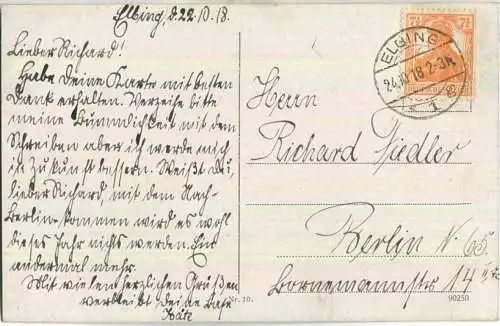 Elbing, d. 22.10.18.
Lieber Richard!
Habe Deine Karte mit besten
Dank erhalten. Verzeihe bitte
meine Bummlichkeit mit dem
Schreiben aber ich werde mich
in Zukunft bessern. Weißt Du,
lieber Richard, mit dem Nach-
Berlin-kommen wird es wohl
dieses Jahr nichts werden. Ein
andermal mehr.
Mit vielen herzlichen Grüßen
verbleibt Deine Base
Käte
7½ 7½
ELBING
24.10.18 2-3N
* 1 g
Herrn
Richard Fiedler
Berlin N. 65.
Bornemannstr 14
Nr. 10.
90250